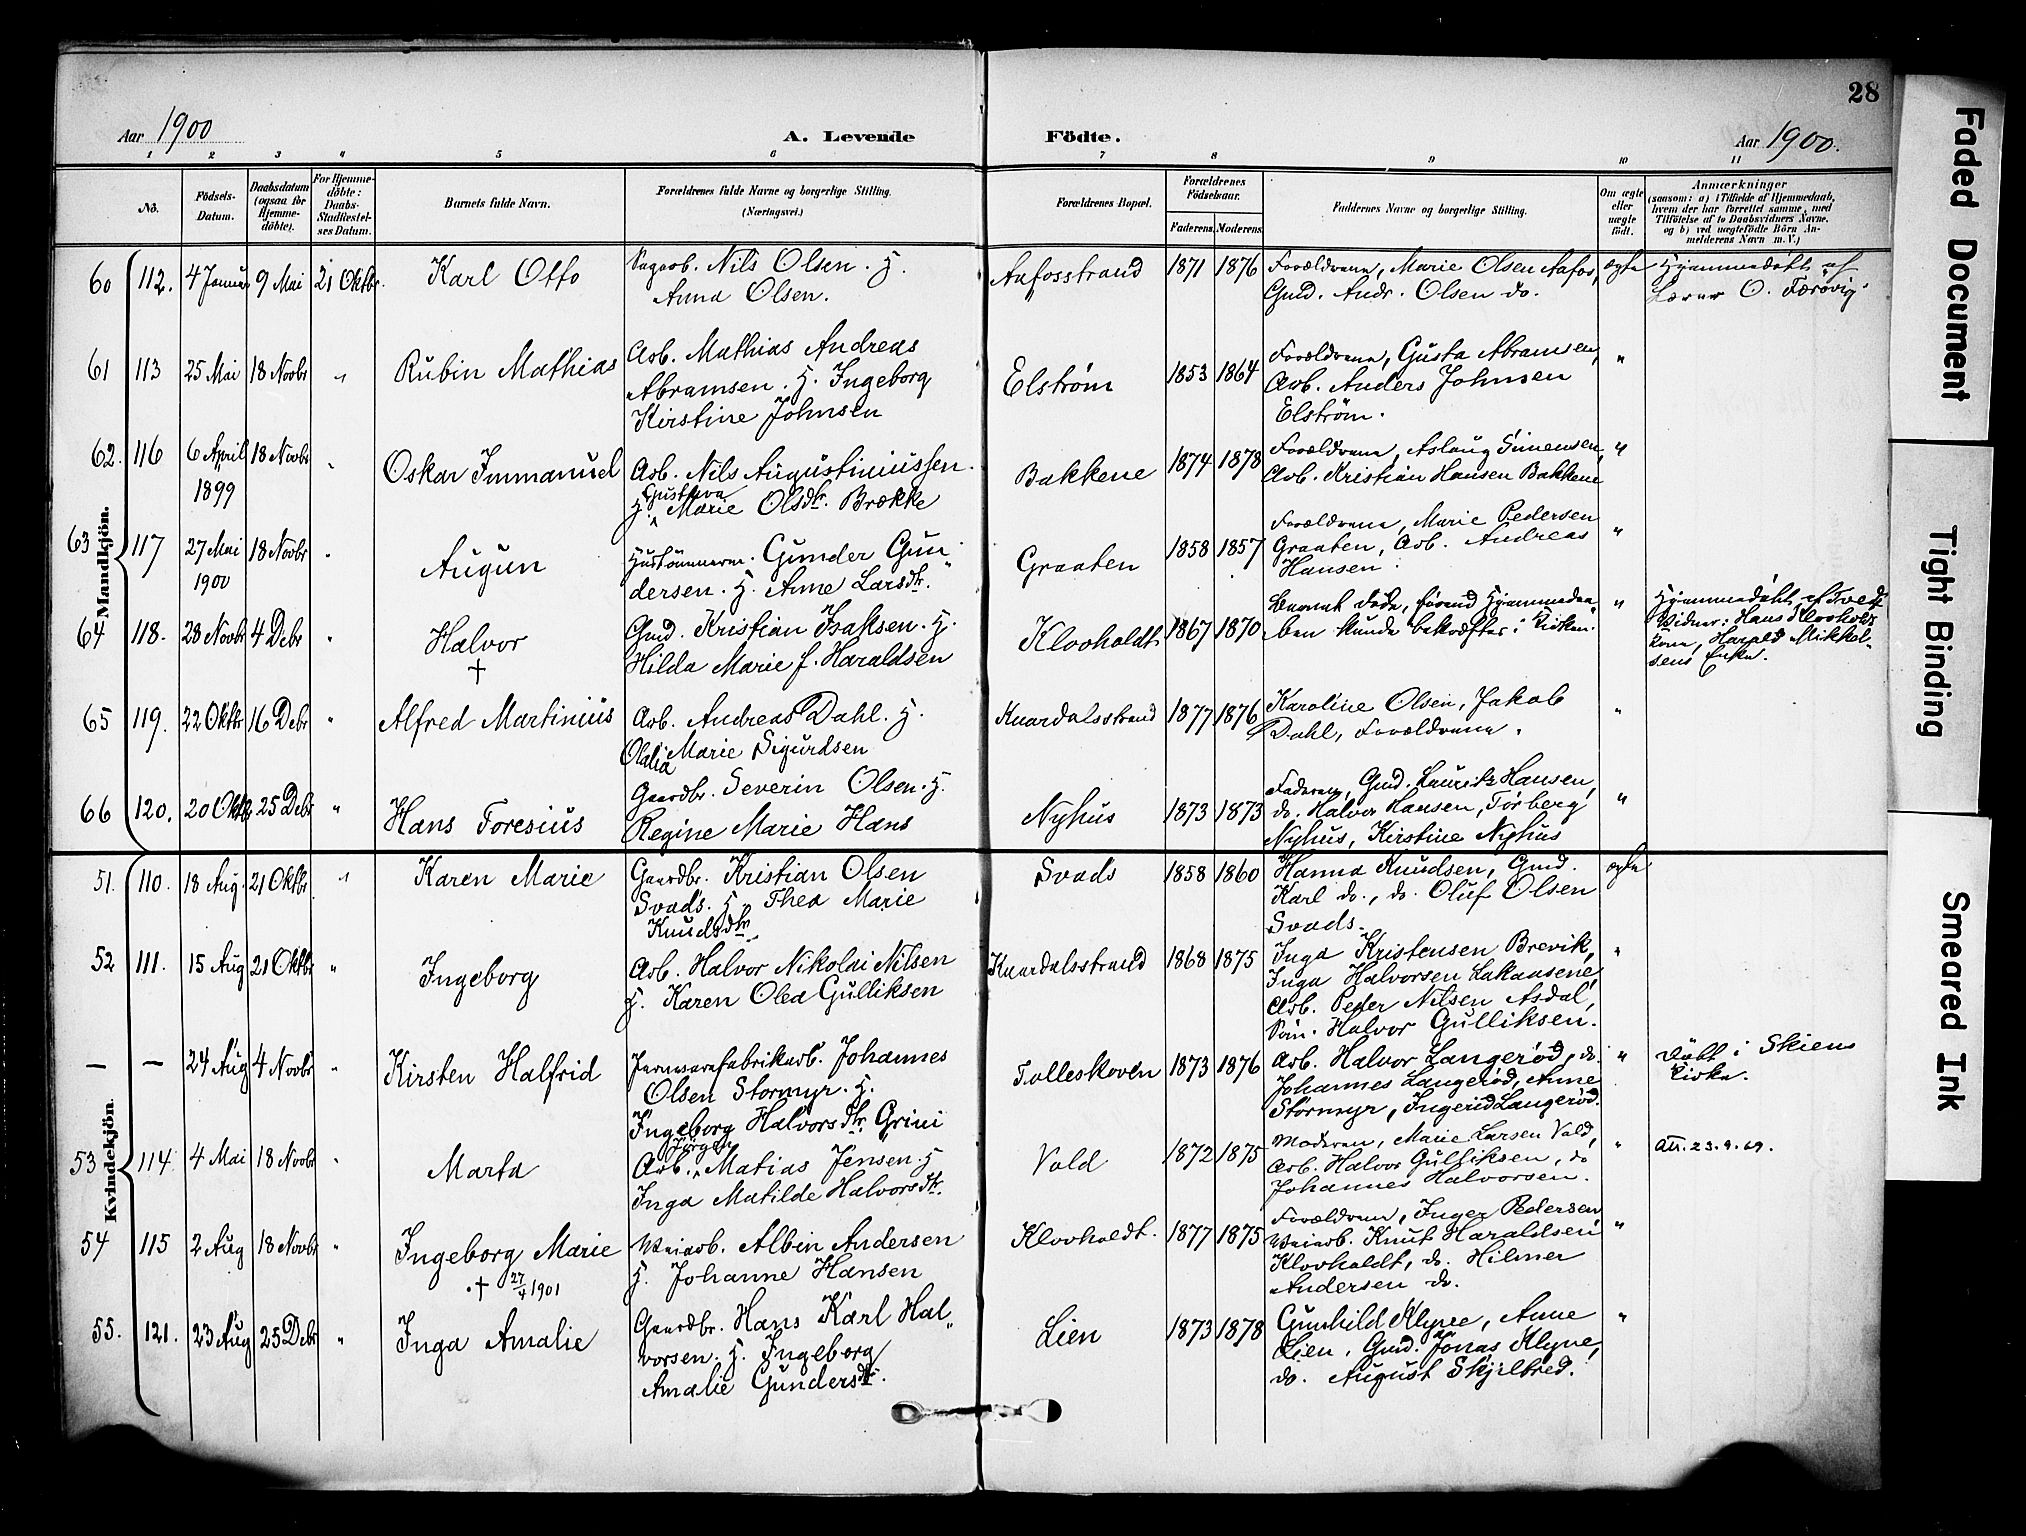 28
Aar 1900
A. Levende
Födte.
Aar 1900.
1 2 3 4 5 6 7 8 9 10 11
No.
Födsels-Datum.
Daabsdatum (ogsaa for Hjemme-döbte).
For Hjemme-döbte: Daabs-Stadfæstel-ses Datum.
Barnets fulde Navn.
Forældrenes fulde Navne og borgerlige Stilling.
(Næringsvei.)
Forældrenes Bopæl.
Forældrenes Födselsaar.
Faderens. Moderens.
Faddernes Navne og borgerlige Stilling.
Om ægte eller uægte födt.
Anmærkninger
(saasom: a) i Tilfælde af Hjemmedaab, hvem der har forrettet samme, med Tilföielse af to Daabsvidners Navne, og b) ved uægtefödte Börn An-melderens Navn m. V.)
Mandkjön.
60 112. 4 Januar 9 Mai 21 Oktbr. Karl Otto
Sagarb. Nils Olsen. H.
Anna Olsen.
Aafosstrand 1871 1876
Forældrene, Marie Olsen Aafos,
Gmd. Andr. Olsen do.
ægte
Hjemmedöbt af
Lærer O. Færövig.
61 113 25 Mai 18 Novbr " Rubin Mathias
Arb. Mathias Andreas
Abramsen. H. Ingeborg
Kirstine Johnsen
Elström 1853 1864
Forældrene, Gusta Abramsen,
Arb. Anders Johnsen
Elström.
"
62. 116 6 April 1899 18 Novbr " Oskar Immanuel
Arb. Nils Augustiniussen.
H. Gustava Marie Olsdtr. Brække
Bakkene 1874 1878
Forældrene, Aslaug Simensen,
Arb. Kristian Hansen Bakkene
"
63 117 27 Mai 1900 18 Novbr " Augun
Hustömmerm. Gunder Gun-
dersen. H. Anne Larsdtr.
Graaten 1858 1857
Forældrene, Marie Pedersen
Graaten, Arb. Andreas
Hansen.
"
64 118. 28 Novbr 4 Debr " Halvor
†
Gmd. Kristian Isaksen. H.
Hilda Marie f. Haraldsen
Klovholdt 1867 1870
Barnet döde, förend Hjemmedaa-
ben kunde bekræftes i Kirken.
"
Hjemmedöbt af Tvedt
Vidner: Hans Klovholdts
Kone, Harald Mikkel-
sens Enke.
65 119. 22 Oktbr 16 Debr " Alfred Martinius
Arb. Andreas Dahl. H.
Olalia Marie Sigurdsen
Knardalsstrand 1877 1876
Karoline Olsen, Jakob
Dahl, Forældrene.
"
66 120. 20 Oktbr 25 Debr " Hans Toresius
Gaardbr. Severin Olsen. H.
Regine Marie Hans
Nyhus 1873 1873
Faderen, Gmd. Lauritz Hansen,
do. Halvor Hansen, Torberg
Nyhus, Kirstine Nyhus
"
Kvindekjön.
51. 110. 18 Aug. 21 Oktbr " Karen Marie
Gaardbr. Kristian Olsen
Svads. H. Thea Marie
Knudsdtr.
Svads 1858 1860
Hanna Knudsen, Gmd.
Karl do., do. Oluf Olsen
Svads.
ægte
52 111. 15 Aug 21 Oktbr " Ingeborg
Arb. Halvor Nikolai Nilsen
H. Karen Olea Gulliksen
Knardalsstrand 1868 1875
Inga Kristensen Brevik,
Inga Halvorsen
Arb. Peder Nilsen Asdal,
Halvor Gulliksen.
"
— — 24 Aug 4 Novbr " Kirsten Halfrid
Jernvarefabrikarb. Johannes
Olsen Stormyr. H.
Ingeborg Halvorsdtr. Grini
Folleskoven 1873 1876
Arb. Halvor Langeröd, do.
Johannes Langeröd, Anne
Stormyr, Ingerid Langeröd.
"
Döbt i Skiens
Kirke.
53 114 4 Mai 18 Novbr " Marta
Arb. Jörgen Matias Jensen. H
Inga Matilde Halvorsdtr.
Vold 1872 1875
Moderen, Marie Larsen Vold,
Arb. Halvor Gulliksen, do
Johannes Halvorsen.
"
Att. 23.9.69.
54 115 2 Aug 18 Novbr " Ingeborg Marie
† 27/4 1901
Veiarb. Albin Andersen
H. Johanne Hansen
Klovholdt. 1877 1875
Forældrene, Inger Pedersen,
Veiarb. Knut Haraldsen
Klovholdt, do. Hilmer
Andersen do.
"
55. 121. 23 Aug 25 Debr " Inga Amalie
Gaardbr. Hans Karl Hal-
vorsen. H. Ingeborg
Amalie Gundersdtr.
Lien 1873 1878
Gunhild Klyve, Anne
Lien, Gmd. Jonas Klyve,
do. August Skjelbred.
"
Faded Document
Tight Binding
Smeared Ink